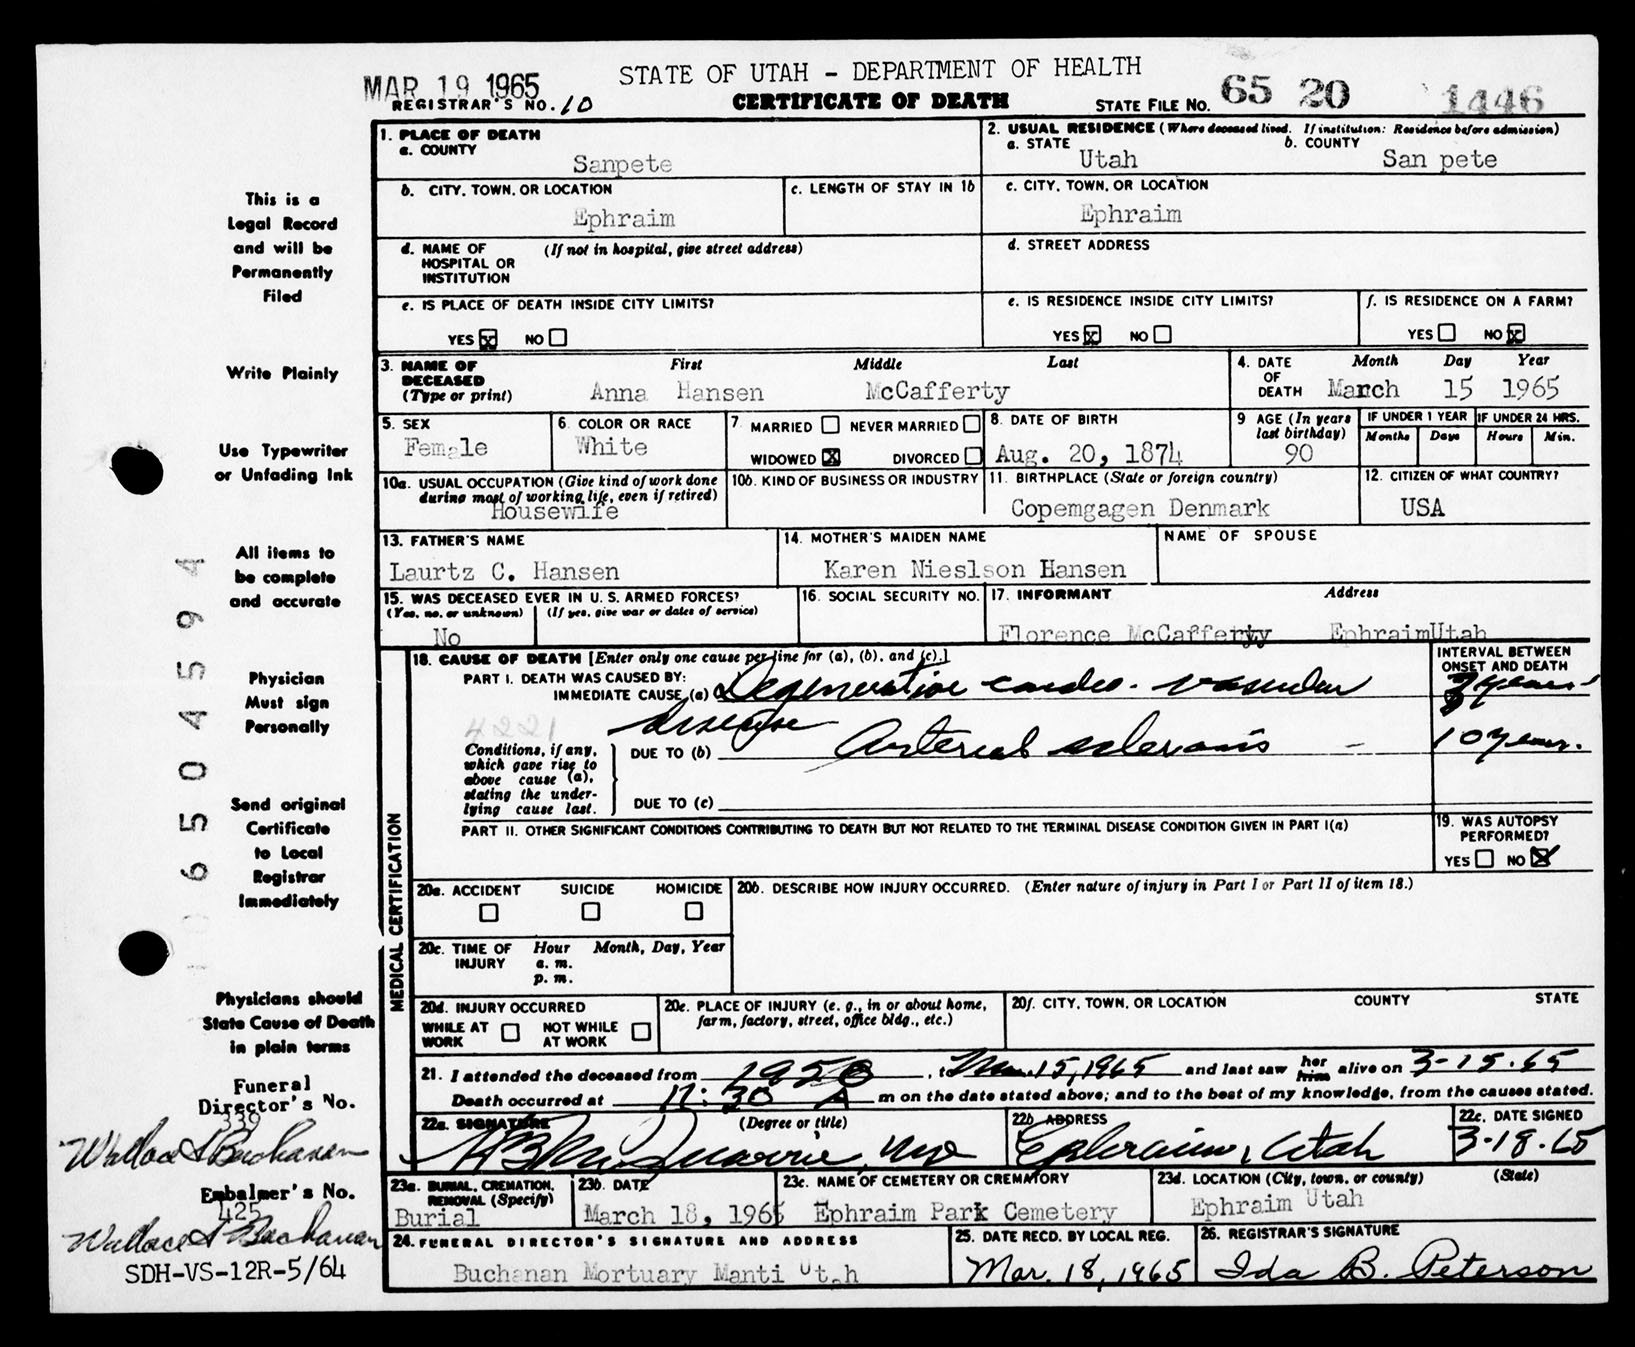 MAR 19 1965
STATE OF UTAH - DEPARTMENT OF HEALTH
REGISTRAR'S NO. 10
CERTIFICATE OF DEATH
STATE FILE NO. 65 20 1446
This is a
Legal Record
and will be
Permanently
Filed
Write Plainly
Use Typewriter
or Unfading Ink
All items to
be complete
and accurate
Physician
Must sign
Personally
Send original
Certificate
to Local
Registrar
Immediately
Physicians should
State Cause of Death
in plain terms
Funeral
Director's No.
339
Wallace S Buchanan
Embalmer's No.
425
Wallace S Buchanan
SDH-VS-12R-5/64
65045594
1. PLACE OF DEATH
a. COUNTY
Sanpete
2. USUAL RESIDENCE (Where deceased lived. If institution: Residence before admission)
a. STATE
Utah
b. COUNTY
San pete
b. CITY, TOWN, OR LOCATION
Ephraim
c. LENGTH OF STAY IN 1b
c. CITY, TOWN, OR LOCATION
Ephraim
d. NAME OF (If not in hospital, give street address)
HOSPITAL OR
INSTITUTION
d. STREET ADDRESS
e. IS PLACE OF DEATH INSIDE CITY LIMITS?
YES X NO
e. IS RESIDENCE INSIDE CITY LIMITS?
YES X NO
f. IS RESIDENCE ON A FARM?
YES NO X
3. NAME OF First Middle Last
DECEASED
(Type or print) Anna Hansen McCafferty
4. DATE Month Day Year
OF
DEATH March 15 1965
5. SEX
Female
6. COLOR OR RACE
White
7 MARRIED NEVER MARRIED
WIDOWED X DIVORCED
8. DATE OF BIRTH
Aug. 20, 1874
9 AGE (In years
last birthday)
90
IF UNDER 1 YEAR
Months Days
IF UNDER 24 HRS.
Hours Min.
10a. USUAL OCCUPATION (Give kind of work done
during most of working life, even if retired)
Housewife
10b. KIND OF BUSINESS OR INDUSTRY
11. BIRTHPLACE (State or foreign country)
Copemgagen Denmark
12. CITIZEN OF WHAT COUNTRY?
USA
13. FATHER'S NAME
Laurtz C. Hansen
14. MOTHER'S MAIDEN NAME
Karen Nieslson Hansen
NAME OF SPOUSE
15. WAS DECEASED EVER IN U. S. ARMED FORCES?
(Yes, no, or unknown) (If yes, give war or dates of service)
No
16. SOCIAL SECURITY NO.
17. INFORMANT Address
Florence McCafferty Ephraim Utah
MEDICAL CERTIFICATION
18. CAUSE OF DEATH [Enter only one cause per line for (a), (b), and (c).]
PART I. DEATH WAS CAUSED BY:
IMMEDIATE CAUSE (a) Degenerative cardio-vascular
disease
4221
INTERVAL BETWEEN
ONSET AND DEATH
years
Conditions, if any,
which gave rise to
above cause (a),
stating the under-
lying cause last.
DUE TO (b) Arterial sclerosis 10 years.
DUE TO (c)
PART II. OTHER SIGNIFICANT CONDITIONS CONTRIBUTING TO DEATH BUT NOT RELATED TO THE TERMINAL DISEASE CONDITION GIVEN IN PART I(a)
19. WAS AUTOPSY
PERFORMED?
YES NO X
20a. ACCIDENT SUICIDE HOMICIDE
20b. DESCRIBE HOW INJURY OCCURRED. (Enter nature of injury in Part I or Part II of item 18.)
20c. TIME OF Hour Month, Day, Year
INJURY a. m.
p. m.
20d. INJURY OCCURRED
WHILE AT WORK NOT WHILE AT WORK
20e. PLACE OF INJURY (e. g., in or about home,
farm, factory, street, office bldg., etc.)
20f. CITY, TOWN, OR LOCATION COUNTY STATE
21. I attended the deceased from 1950, to Mar. 15, 1965 and last saw her him alive on 3-15-65
Death occurred at 12:30 A m on the date stated above; and to the best of my knowledge, from the causes stated.
22a. SIGNATURE (Degree or title)
22b ADDRESS
Ephraim, Utah
22c. DATE SIGNED
3-18-65
23a. BURIAL, CREMATION,
REMOVAL (Specify)
Burial
23b. DATE
March 18, 1965
23c. NAME OF CEMETERY OR CREMATORY
Ephraim Park Cemetery
23d. LOCATION (City, town, or county) (State)
Ephraim Utah
24. FUNERAL DIRECTOR'S SIGNATURE AND ADDRESS
Buchanan Mortuary Manti Utah
25. DATE RECD. BY LOCAL REG.
Mar. 18, 1965
26. REGISTRAR'S SIGNATURE
Ida B. Peterson